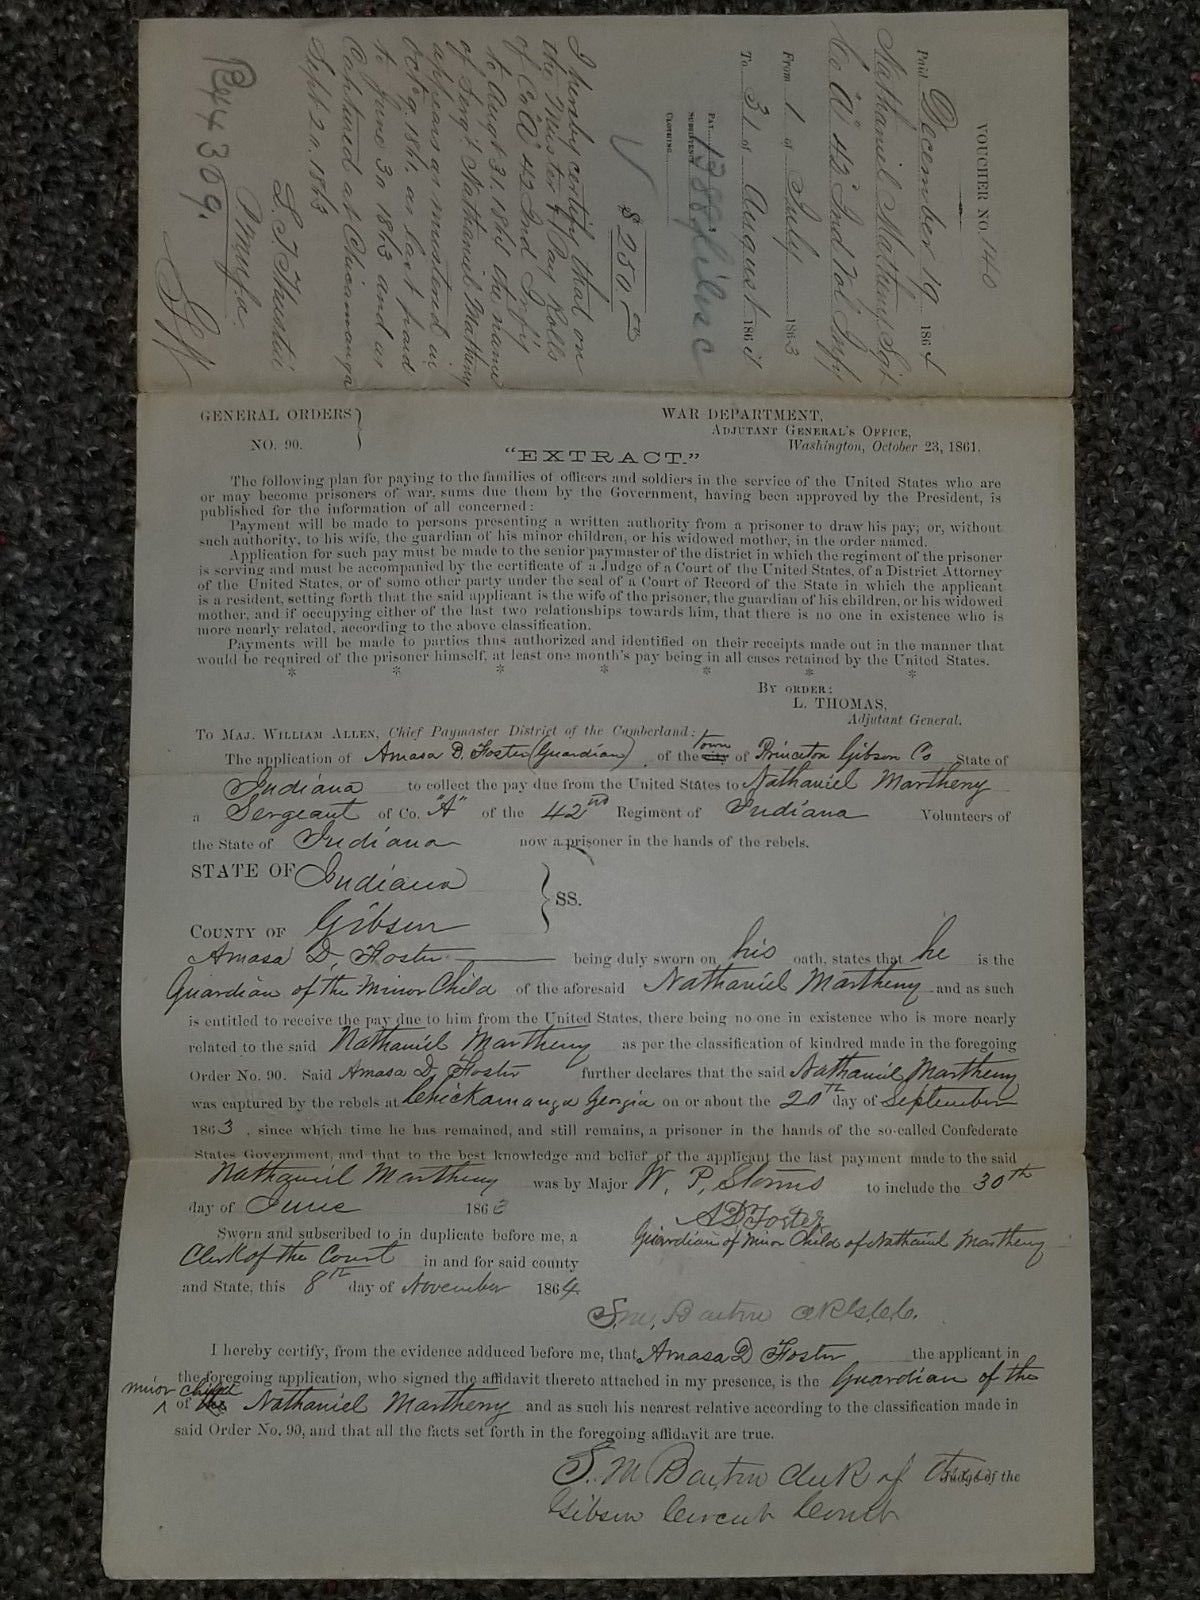 VOUCHER NO. 140
Paid December 19 1864
Nathaniel Matheny Sgt
Co "A" 42" Ind Vol Inf
From 1 of July 1863
To 31 of August 1864
PAY,
SUBSISTENCE
CLOTHING,
$ 250 00
I hereby certify that on
the Muster & Pay Rolls
of Co "A" 42 Ind Inf'y
to Augt 31, 1864 the name
of Serg't Nathaniel Matheny
appears as mustered in
Oct 9, 1861, as last paid
to June 30 1863 and as
Captured at Chicamauga
Sept 20, 1863
4309.
GENERAL ORDERS }
NO. 90.
WAR DEPARTMENT,
ADJUTANT GENERAL'S OFFICE,
Washington, October 23, 1861.
"EXTRACT."
The following plan for paying to the families of officers and soldiers in the service of the United States who are
or may become prisoners of war, sums due them by the Government, having been approved by the President, is
published for the information of all concerned:
Payment will be made to persons presenting a written authority from a prisoner to draw his pay; or, without
such authority, to his wife, the guardian of his minor children, or his widowed mother, in the order named.
Application for such pay must be made to the senior paymaster of the district in which the regiment of the prisoner
is serving and must be accompanied by the certificate of a Judge of a Court of the United States, of a District Attorney
of the United States, or of some other party under the seal of a Court of Record of the State in which the applicant
is a resident, setting forth that the said applicant is the wife of the prisoner, the guardian of his children, or his widowed
mother, and if occupying either of the last two relationships towards him, that there is no one in existence who is
more nearly related, according to the above classification.
Payments will be made to parties thus authorized and identified on their receipts made out in the manner that
would be required of the prisoner himself, at least one month's pay being in all cases retained by the United States.
* * * * * * *
BY ORDER:
L. THOMAS,
Adjutant General.
TO MAJ. WILLIAM ALLEN, Chief Paymaster District of the Cumberland:
The application of Amasa D. Foster (Guardian), of the town city of Princeton Gibson Co State of
Indiana to collect the pay due from the United States to Nathaniel Martheny
a Sergeant of Co. "A" of the 42nd Regiment of Indiana Volunteers of
the State of Indiana now a prisoner in the hands of the rebels.
STATE OF Indiana
} SS.
COUNTY OF Gibson
Amasa D. Foster being duly sworn on his oath, states that he is the
Guardian of the Minor Child of the aforesaid Nathaniel Martheny and as such
is entitled to receive the pay due to him from the United States, there being no one in existence who is more nearly
related to the said Nathaniel Martheny as per the classification of kindred made in the foregoing
Order No. 90. Said Amasa D. Foster further declares that the said Nathaniel Martheny
was captured by the rebels at Chickamauga Georgia on or about the 20th day of September
1863, since which time he has remained, and still remains, a prisoner in the hands of the so-called Confederate
States Government, and that to the best knowledge and belief of the applicant the last payment made to the said
Nathaniel Martheny was by Major W. P. Storms to include the 30th
day of June 1863
A D Foster
Guardian of Minor Child of Nathaniel Martheny
Sworn and subscribed to in duplicate before me, a
Clerk of the Court in and for said county
and State, this 8th day of November 1864
S. M. Barton
I hereby certify, from the evidence adduced before me, that Amasa D Foster the applicant in
the foregoing application, who signed the affidavit thereto attached in my presence, is the Guardian of the
minor child of the Nathaniel Martheny and as such his nearest relative according to the classification made in
said Order No. 90, and that all the facts set forth in the foregoing affidavit are true.
S. M Barton Clerk of the Judge of the
Gibson Circuit Court